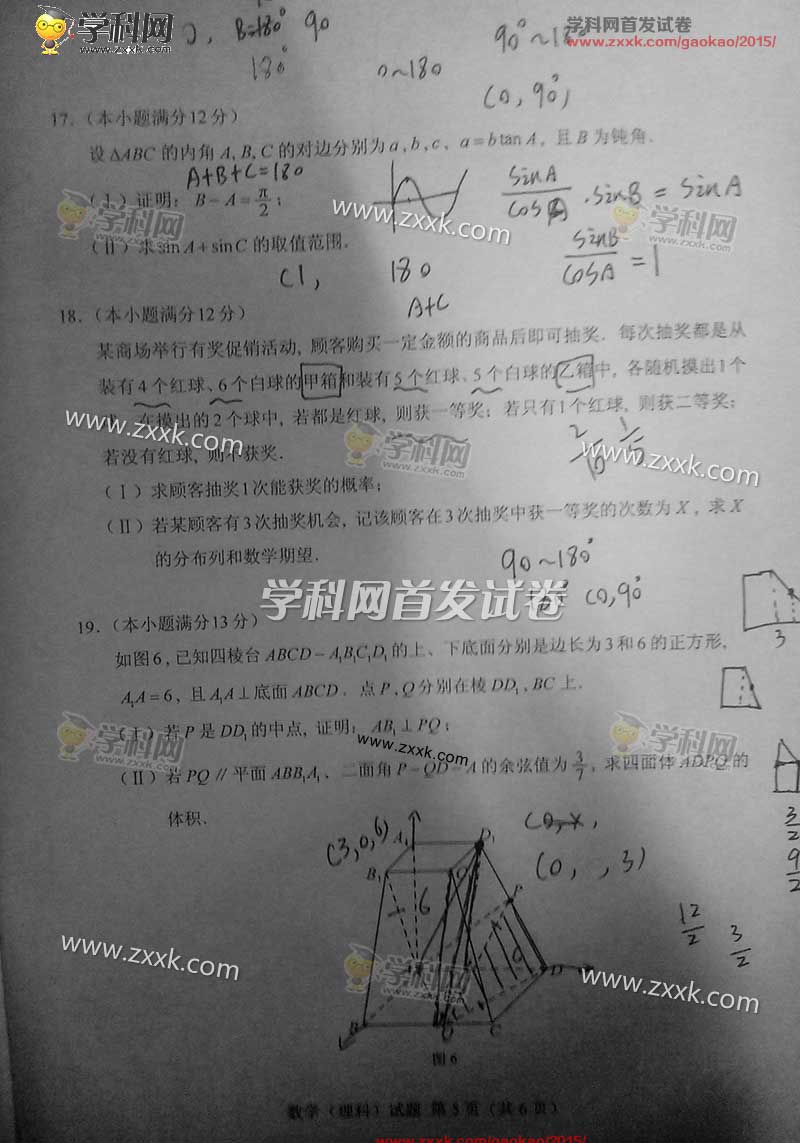 学科网 B=180° 90 90°~180° 学科网首发试卷
www.zxxk.com www.zxxk.com/gaokao/2015/
180° 0~180
(0, 90°)
17.（本小题满分12分）
设△ABC 的内角 A, B, C 的对边分别为 a, b, c, a = b tan A, 且 B 为钝角.
A+B+C=180
sinA/cosA · sinB = sinA
（Ⅰ）证明: B − A = π/2;
学科网 www.zxxk.com www.zxxk.com 学科网 www.zxxk.com
（Ⅱ）求 sin A + sin C 的取值范围.
sinB/cosA = 1
(1, 180
A+C
18.（本小题满分12分）
某商场举行有奖促销活动, 顾客购买一定金额的商品后即可抽奖. 每次抽奖都是从
装有4个红球、6个白球的甲箱和装有5个红球、5个白球的乙箱中, 各随机摸出1个
球, 在摸出的2个球中, 若都是红球, 则获一等奖; 若只有1个红球, 则获二等奖;
www.zxxk.com 学科网 www.zxxk.com www.zxxk.com
若没有红球, 则不获奖.
（Ⅰ）求顾客抽奖1次能获奖的概率;
（Ⅱ）若某顾客有3次抽奖机会, 记该顾客在3次抽奖中获一等奖的次数为 X, 求 X
的分布列和数学期望.
90~180°
(0, 90°
学科网首发试卷
19.（本小题满分13分）
3
如图6, 已知四棱台 ABCD − A₁B₁C₁D₁ 的上、下底面分别是边长为3和6的正方形,
A₁A = 6, 且 A₁A ⊥ 底面 ABCD. 点 P, Q 分别在棱 DD₁, BC 上.
（Ⅰ）若 P 是 DD₁ 的中点, 证明: AB₁ ⊥ PQ;
学科网 www.zxxk.com www.zxxk.com 学科网 www.zxxk.com
（Ⅱ）若 PQ // 平面 ABB₁A₁, 二面角 P − QD − A 的余弦值为 3/7, 求四面体 ADPQ 的
体积.
3/2
(0,
(3, 0, 6) A₁ D₁
B₁ C₁
(0, , 3)
9/2
6
P
12/2
3/2
www.zxxk.com 学科网 www.zxxk.com www.zxxk.com
D
B Q C
图6
数学（理科）试题 第5页（共6页）
www.zxxk.com/gaokao/2015/